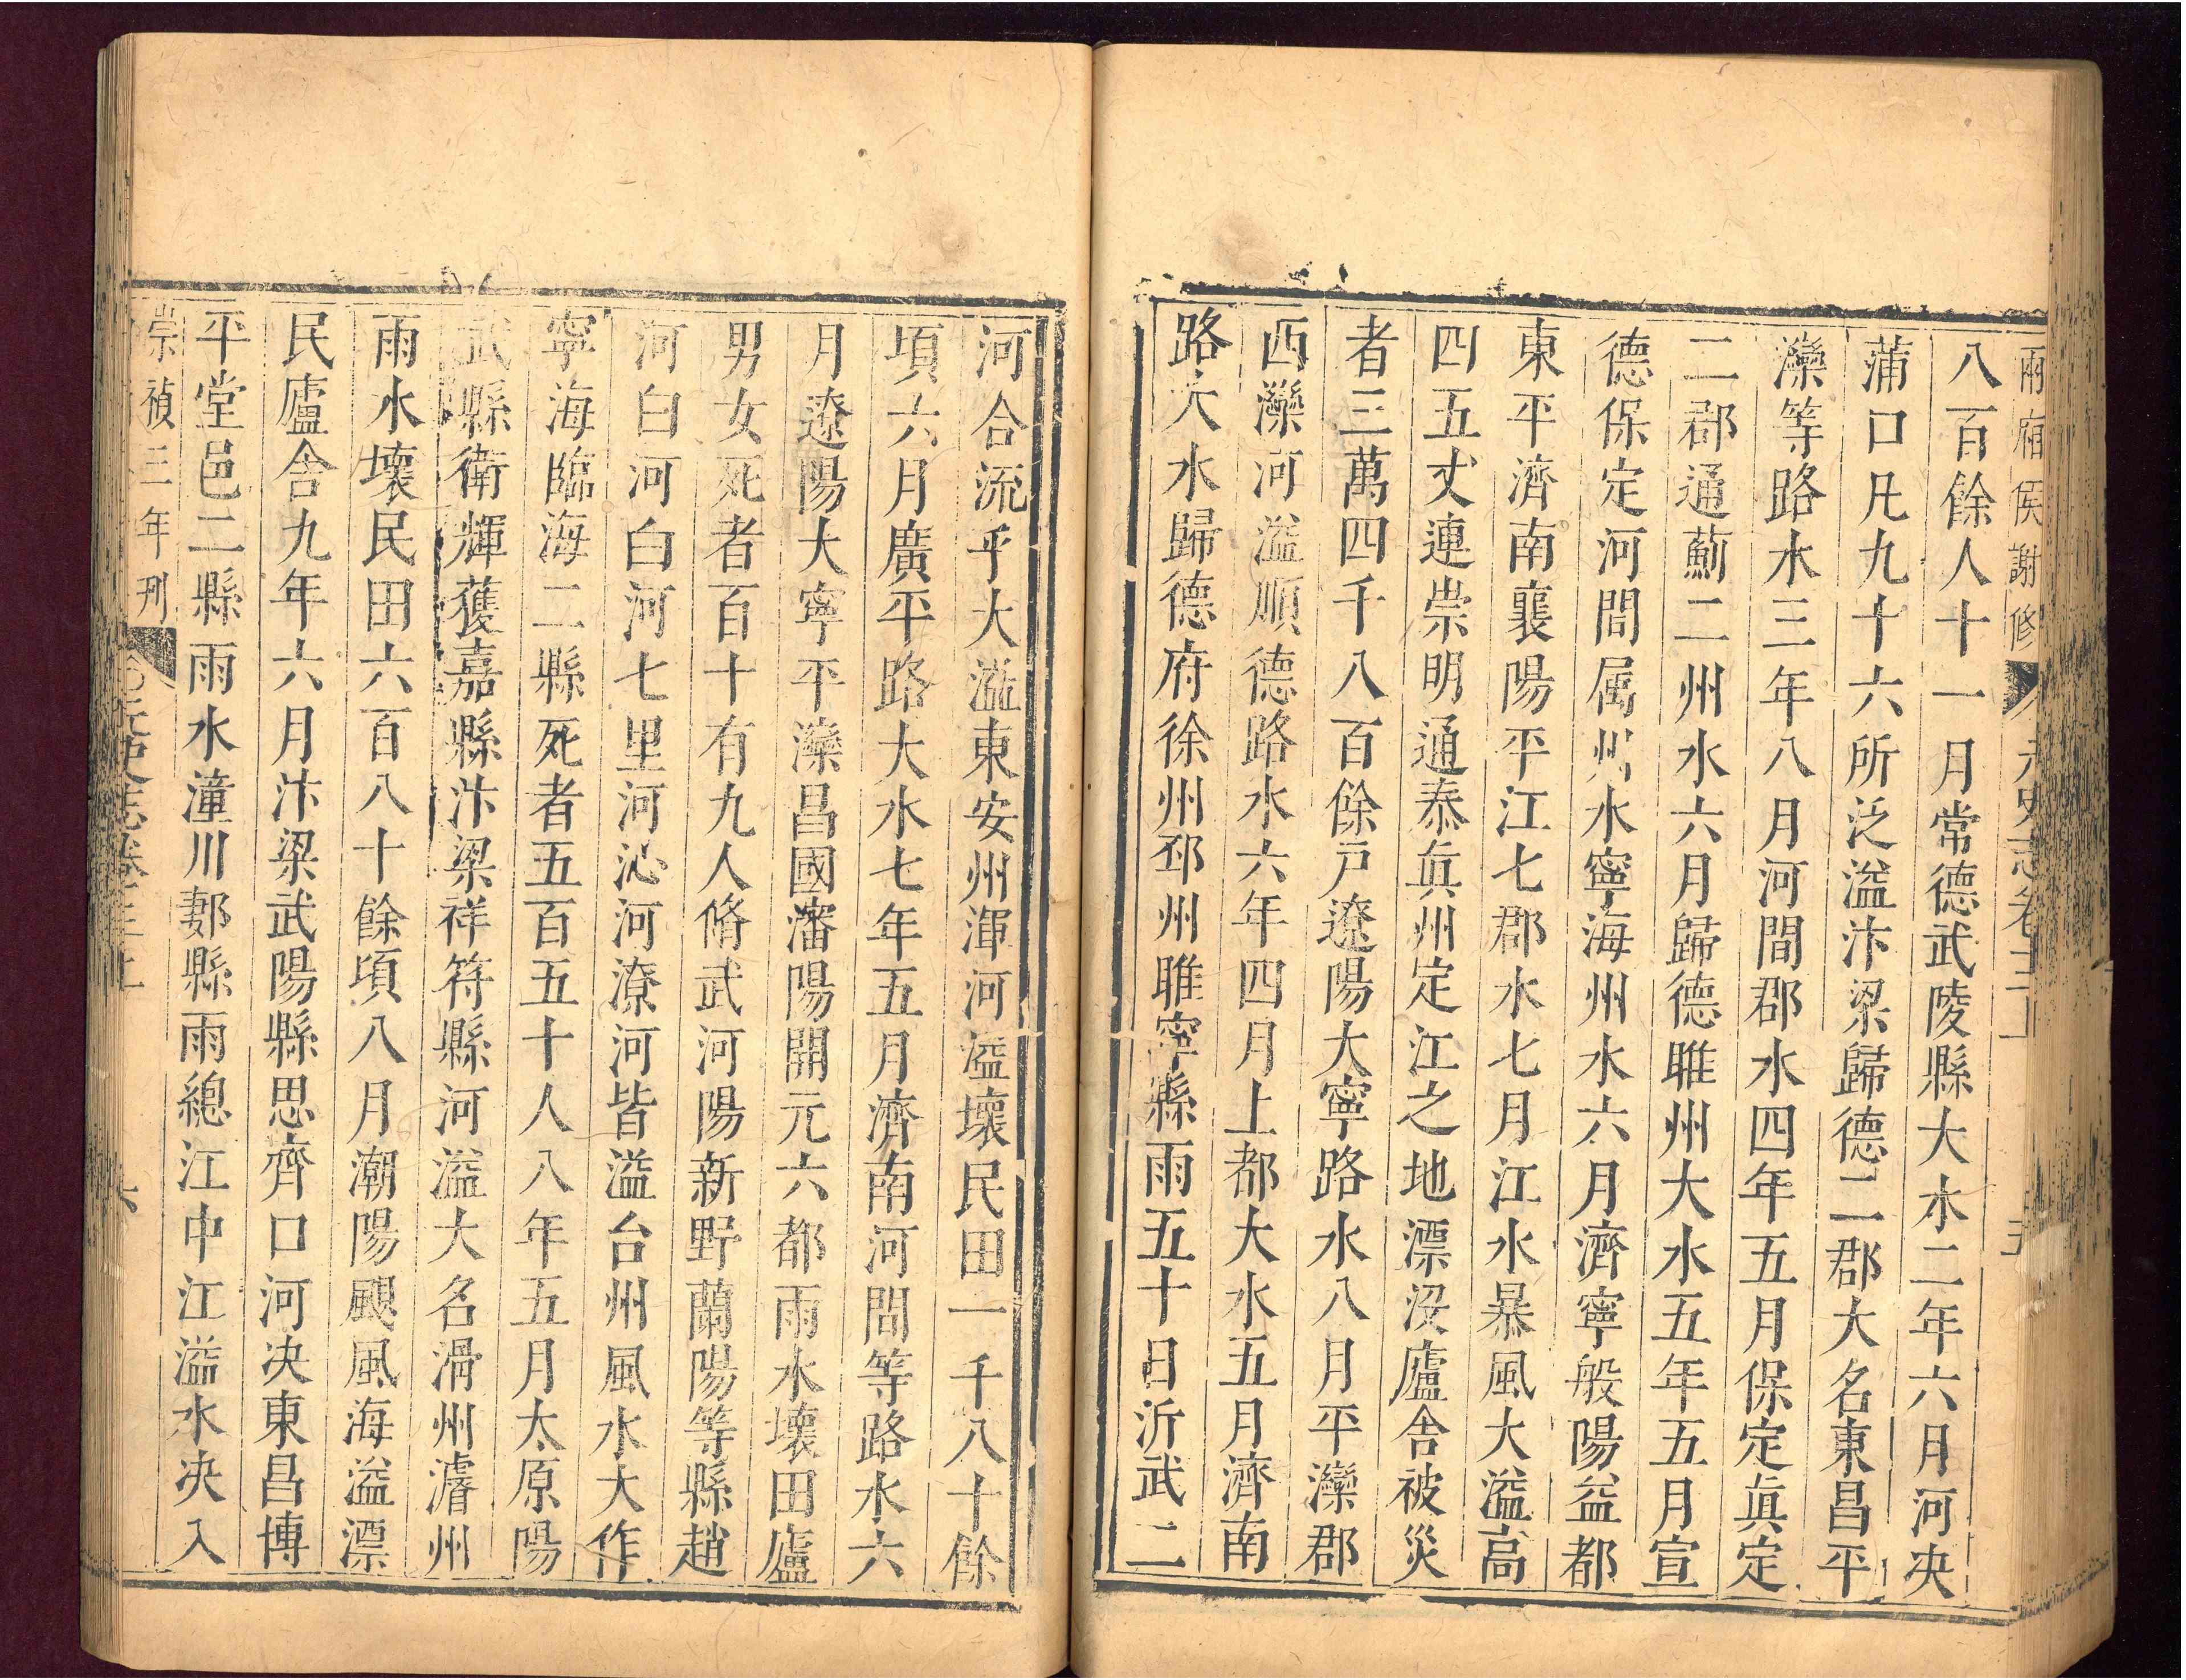 兩廂侯謝修 元史志卷三上 五
八百餘人十一月常德武陵縣大水二年六月河决
蒲口凡九十六所泛溢汴梁歸德二郡大名東昌平
灤等路水三年八月河間郡水四年五月保定眞定
二郡通薊二州水六月歸德睢州大水五年五月宣
德保定河間属州水寧海州水六月濟寧般陽益都
東平濟南襄陽平江七郡水七月江水暴風大溢高
四五丈連崇明通泰眞州定江之地漂沒廬舍被災
者三萬四千八百餘戸遼陽大寧路水八月平灤郡
西灤河溢順德路水六年四月上都大水五月濟南
路大水歸德府徐州邳州睢寧縣雨五十日沂武二
河合流乎大溢東安州渾河溢壞民田一千八十餘
頃六月廣平路大水七年五月濟南河間等路水六
月遼陽大寧平灤昌國瀋陽開元六都雨水壞田廬
男女死者百十有九人脩武河陽新野蘭陽等縣趙
河白河白河七里河沁河潦河皆溢台州風水大作
寧海臨海二縣死者五百五十人八年五月太原陽
武縣衛輝獲嘉縣汴梁祥符縣河溢大名滑州濬州
雨水壞民田六百八十餘頃八月潮陽颶風海溢漂
民廬舍九年六月汴梁武陽縣思齊口河决東昌博
平堂邑二縣雨水潼川郪縣雨總江中江溢水决入
崇禎三年刋 六